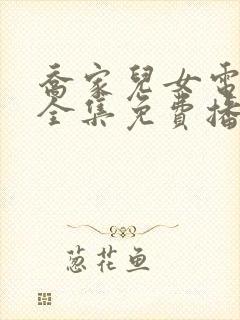 喬家兒女電
全集免費播
葱花鱼